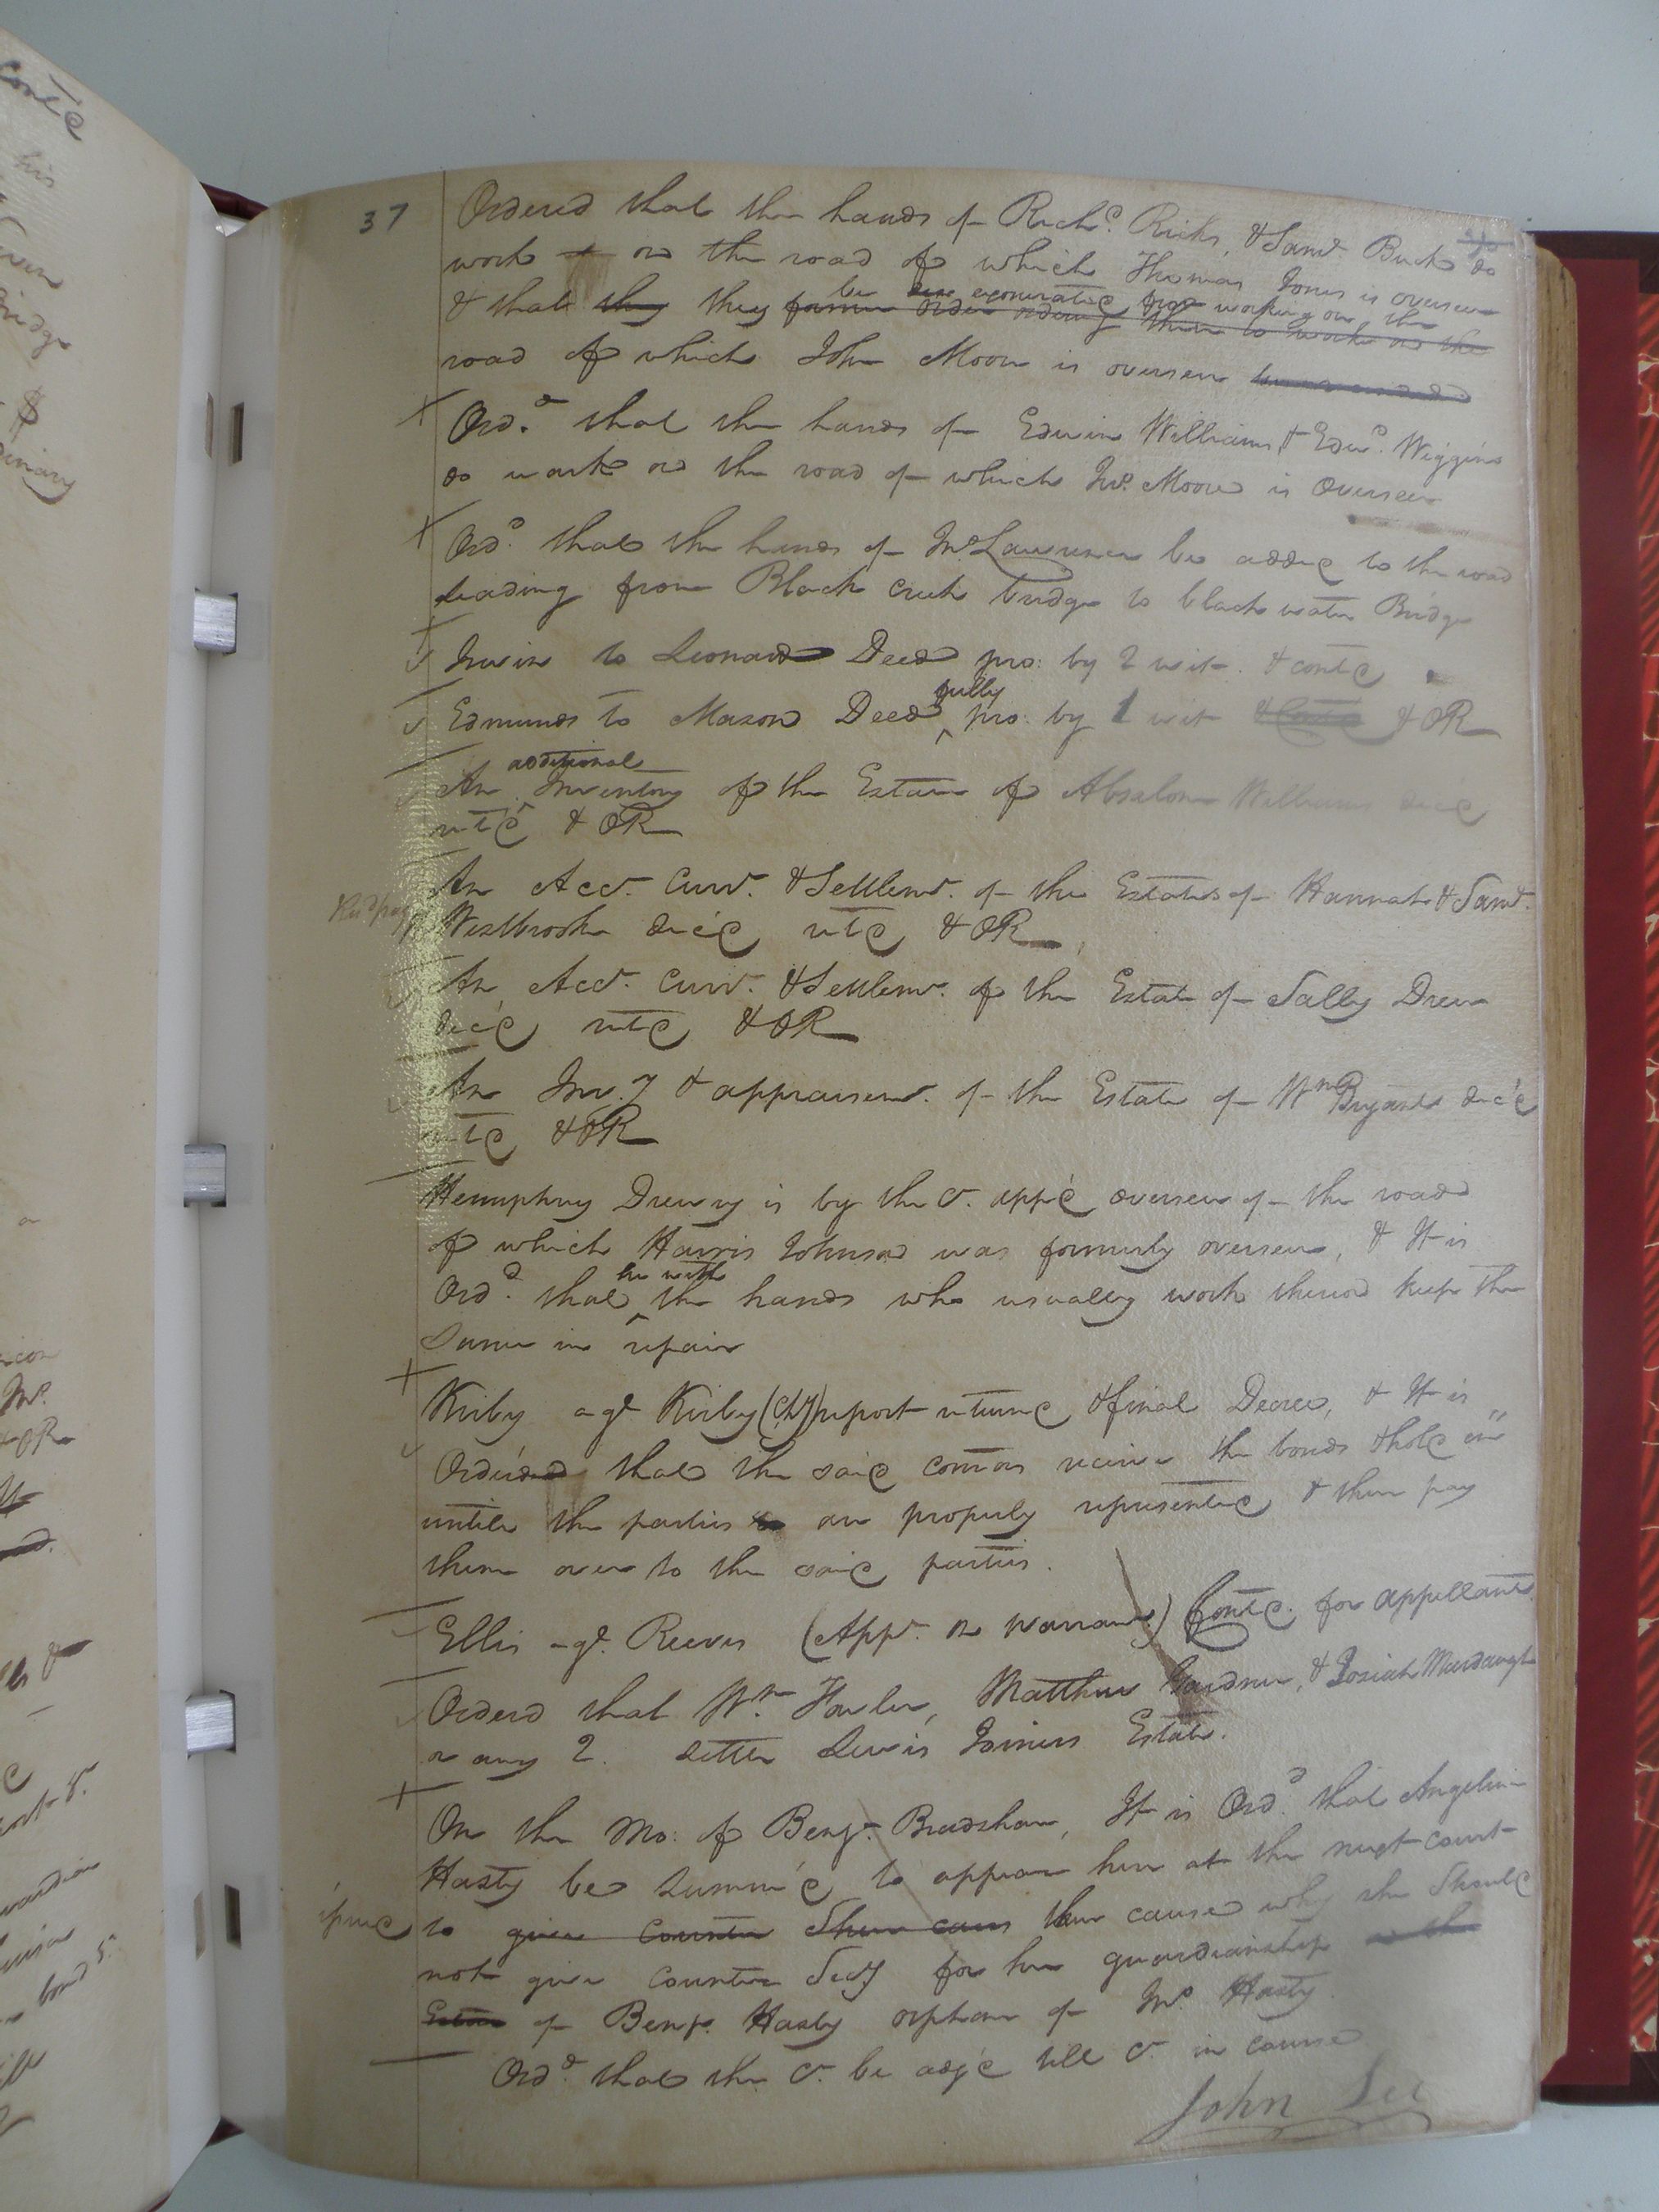 37
Ordered that the hands of Richd. Ricks, & Saml. Buck do
work on the road of which Thomas Jones is overseer
be exonerated from working on the
& that they they former order ordering them to work on the
road of which John Moore is overseer
Ord.d that the hands of Edwin Williams & Edwd. Wiggins
do work on the road of which Jno. Moore is Overseer
Ord.d that the hands of Jno Lawrence be added to the road
leading from Black Creek bridge to black water Bridge
Irwin to Leonard Deed pro: by 2 wit. & contd
fully
Edmunds to Mason Deed ^ pro: by 1 wit & Contd & OR
additional
An ^ Inventory of the Estate of Absalom Williams decd
retd & OR
An Acct. Curt. & Settlemt. of the Estates of Hannah & Saml.
Westbrook dec'd retd & OR
An Acct. Curt. & Settlemt. of the Estate of Sally Drew
dec'd retd & OR
An Inv.y & appraisemt. of the Estate of Wm Bryant dec'd
retd & OR
Hemuphry Drewry is by the Ct. app'd overseer of the road
of which Harris Johnson was formerly overseer, & It is
he with
Ord.d that ^ the hands who usually work thereon keep the
same in repair
Kirby agt Kirby (Chy) report returnd & final Decree, & It is
Ordered that the said comrs receive the bonds & hold em
until the parties are properly represented & then pay
them over to the said parties.
Ellis agt. Reeves (Appt. on Warrant) Contd. for appellants
Orderd that Wm. Fowler, Matthew Gardner, & Josiah Murdaugh
or any 2. settle Lewis Joiners Estate.
On the Mo: of Benjn. Bradshaw, It is Ord.d that Angelin
Hasty be summ'd to appear here at the next court
issued
to give counter Shew caus shew cause why she should
not give counter Secy for her guardianship
Estate of Benjn. Hasty orphan of Jno Hasty
Ord.d that the Ct. be adj'd till Ct. in course
John Lee